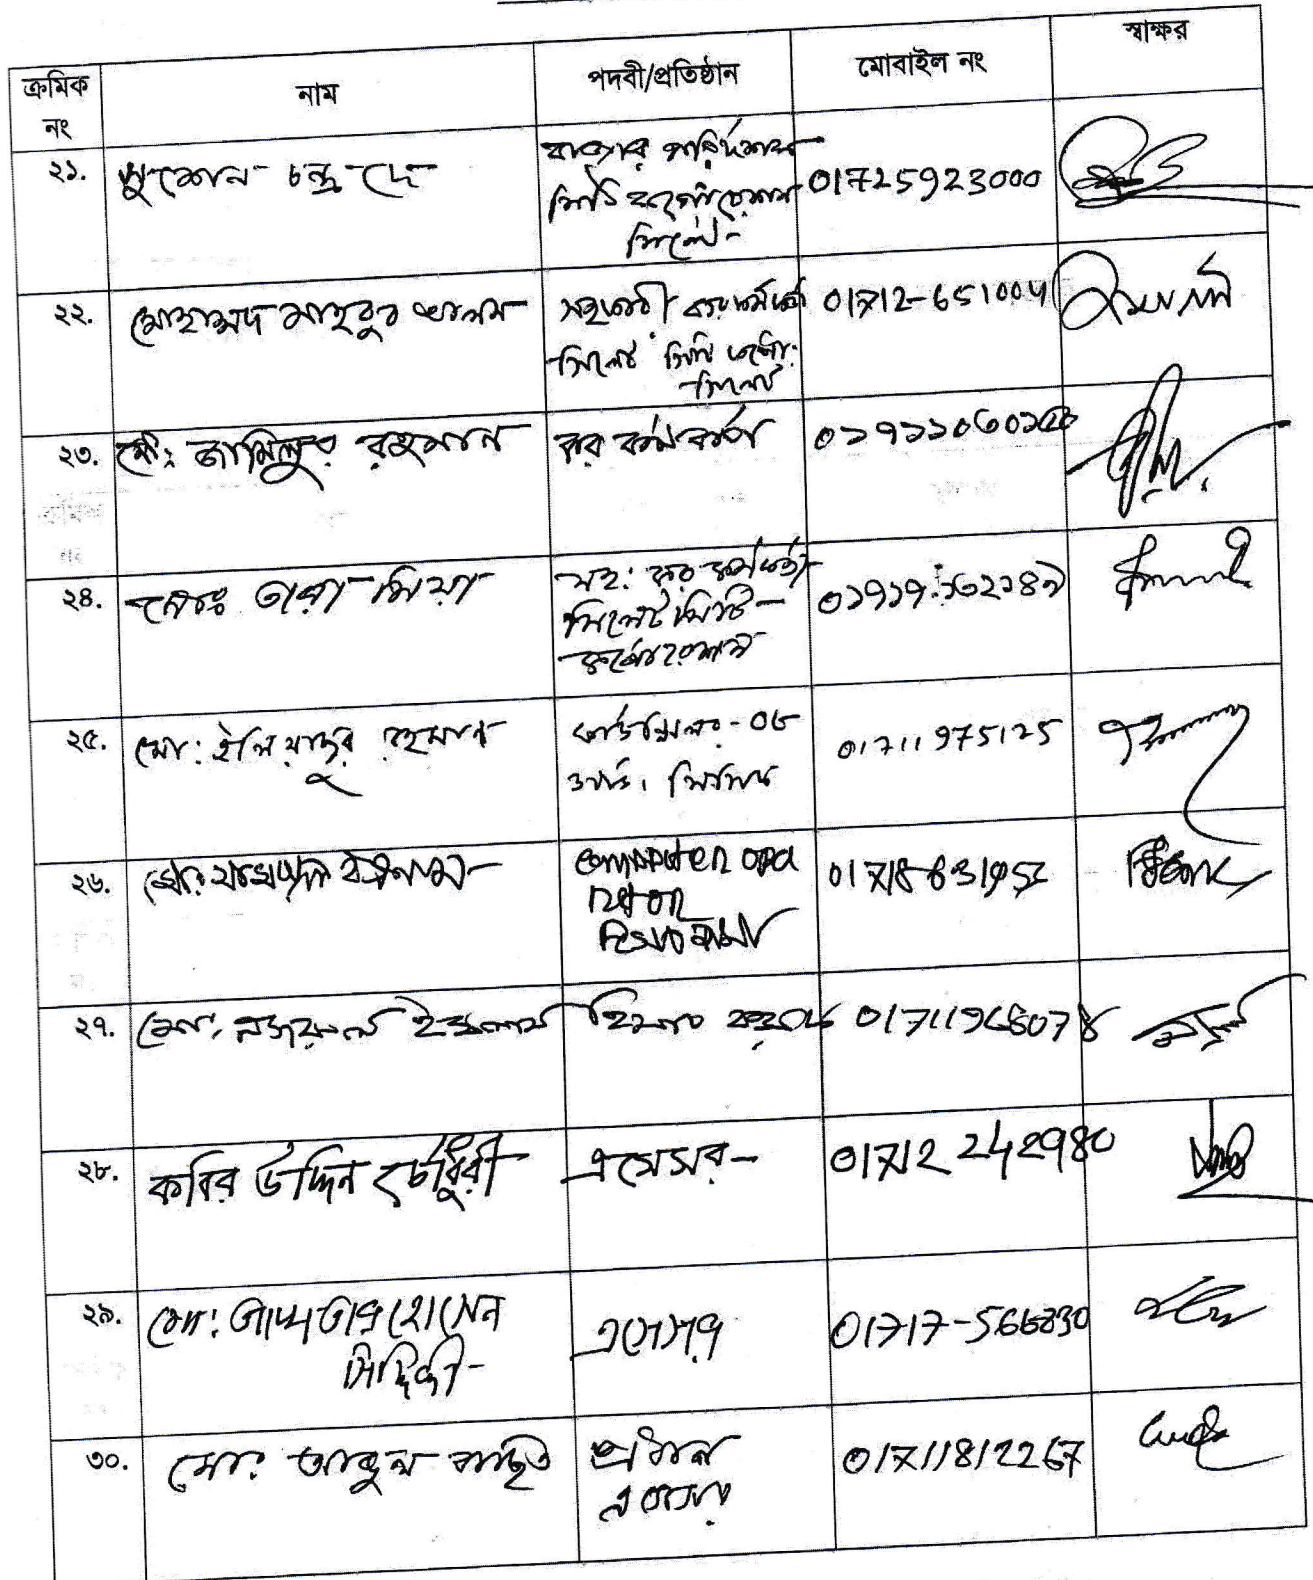 ক্রমিক নং
নাম
পদবী/প্রতিষ্ঠান
মোবাইল নং
স্বাক্ষর
২১.
সুশেন চন্দ্র দে
বাজার পরিদর্শক
সিটি কর্পোরেশন
সিলেট
01725923000
২২.
মোহাম্মদ মাহবুব আলম
সহকারী কর কর্মকর্তা
সিলেট সিটি কর্পো:
সিলেট
01712-651004
২৩.
মো: জামিলুর রহমান
কর কর্মকর্তা
২৪.
মোঃ তারা মিয়া
সহ: কর কর্মকর্তা
সিলেট সিটি
কর্পোরেশন
২৫.
মো: ইলিয়াছুর রহমান
কাউন্সিলর - ০৬
ওয়ার্ড, সিসিক
01711975125
২৬.
computer ope
rator
হিসাব শাখা
২৭.
মো: নজরুল ইসলাম
হিসাব
01711968078
২৮.
কবির উদ্দিন চৌধুরী
এসেসর
01712 242980
২৯.
মো: আখতার হোসেন
সিদ্দিকী
এসেসর
01717-566830
৩০.
মো: আব্দুল বাছিত
প্রধান
এসেসর
01711812267